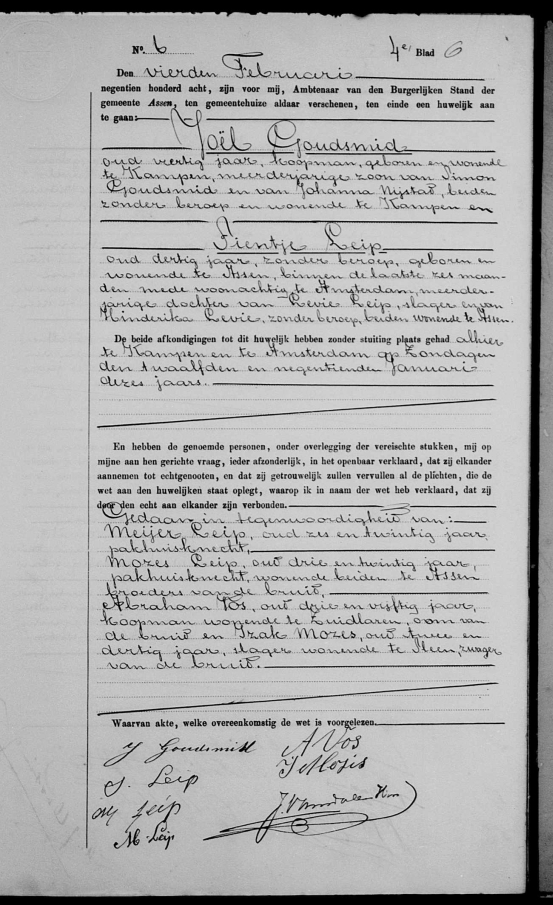 No. 6 4e Blad 6
Den vierden Februari
negentien honderd acht, zijn voor mij, Ambtenaar van den Burgerlijken Stand der
gemeente Assen, ten gemeentehuize aldaar verschenen, ten einde een huwelijk aan
te gaan:
Joël Goudsmid
oud veertig jaar, koopman, geboren en wonende
te Kampen, meerderjarige zoon van Simon
Goudsmid en van Johanna Nijstad, beiden
zonder beroep en wonende te Kampen en
Sientje Leip
oud dertig jaar, zonder beroep, geboren en
wonende te Assen, binnen de laatste zes maan-
den mede woonachtig te Amsterdam, meerder-
jarige dochter van Levie Leip, slager en van
Hinderika Levie, zonder beroep, beiden wonende te Assen.
De beide afkondigingen tot dit huwelijk hebben zonder stuiting plaats gehad alhier
te Kampen en te Amsterdam op Zondagen
den twaalfden en negentienden Januari
dezes jaars.
En hebben de genoemde personen, onder overlegging der vereischte stukken, mij op
mijne aan hen gerichte vraag, ieder afzonderlijk, in het openbaar verklaard, dat zij elkander
aannemen tot echtgenooten, en dat zij getrouwelijk zullen vervullen al de plichten, die de
wet aan den huwelijken staat oplegt, waarop ik in naam der wet heb verklaard, dat zij
door den echt aan elkander zijn verbonden.
Gedaan in tegenwoordigheid van:
Meijer Leip, oud zes en twintig jaar
pakhuisknecht,
Mozes Leip, oud drie en twintig jaar,
pakhuisknecht, wonende beiden te Assen
broeders van de bruid,
Abraham Vos, oud drie en vijftig jaar,
koopman wonende te Zuidlaren, oom van
de bruid en Izak Mozes, oud twee en
dertig jaar, slager wonende te Steen, zwager
van de bruid.
Waarvan akte, welke overeenkomstig de wet is voorgelezen.
J Goudsmid A Vos
S. Leip I Mozes
M Leip
M. Leip